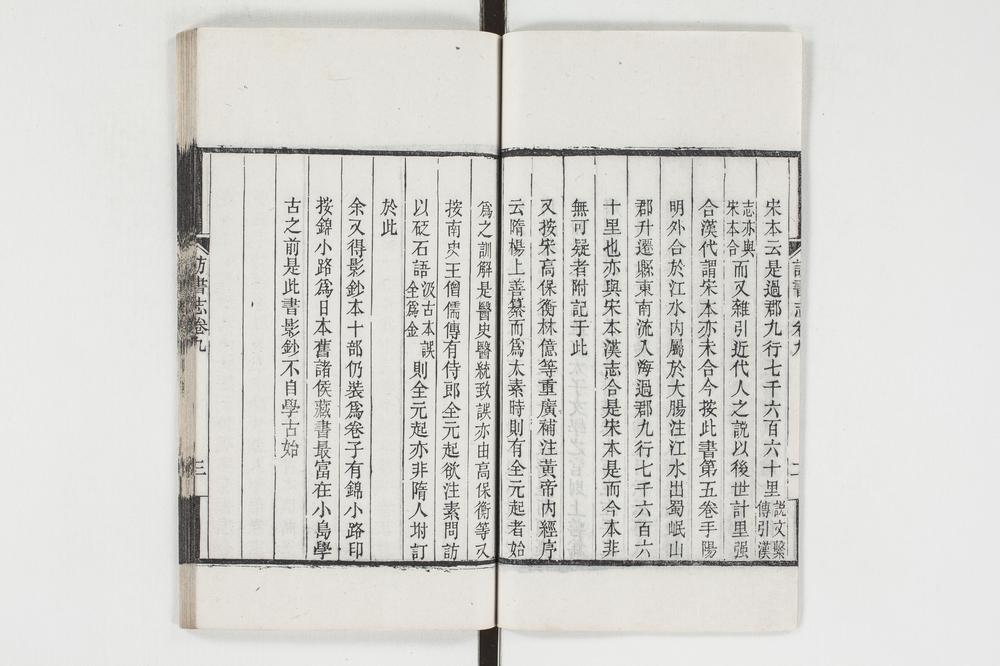 宋本云是過郡九行七千六百六十里說文繫傳引漢
志亦與宋本合而又雜引近代人之說以後世計里强
合漢代謂宋本亦未合今按此書第五卷手陽
明外合於江水內屬於大腸注江水出蜀岷山
郡升遷縣東南流入海過郡九行七千六百六
十里也亦與宋本漢志合是宋本是而今本非
無可疑者附記于此
又按宋高保衡林億等重廣補注黃帝內經序
云隋楊上善纂而爲太素時則有全元起者始
爲之訓解是醫史醫統致誤亦由高保衡等又
按南史王僧孺傳有侍郎全元起欲注素問訪
以砭石語汲古本誤全爲金則全元起亦非隋人坿訂
於此
余又得影鈔本十部仍裝爲卷子有錦小路印
按錦小路爲日本舊諸侯藏書最富在小島學
古之前是此書影鈔不自學古始
訪書志卷九
三